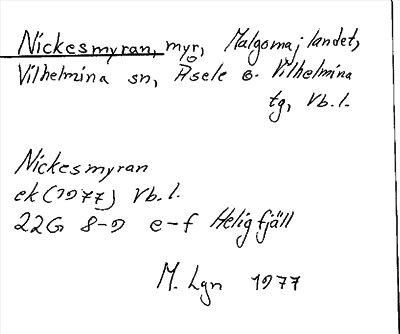 Nickesmyran, myr, Malgomajlandet,
Vilhelmina sn, Åsele o. Vilhelmina
tg, Vb.l.
Nickesmyran
ek (1977) Vb.l.
22G 8-9 e-f Heligfjäll
M. Lgn 1977